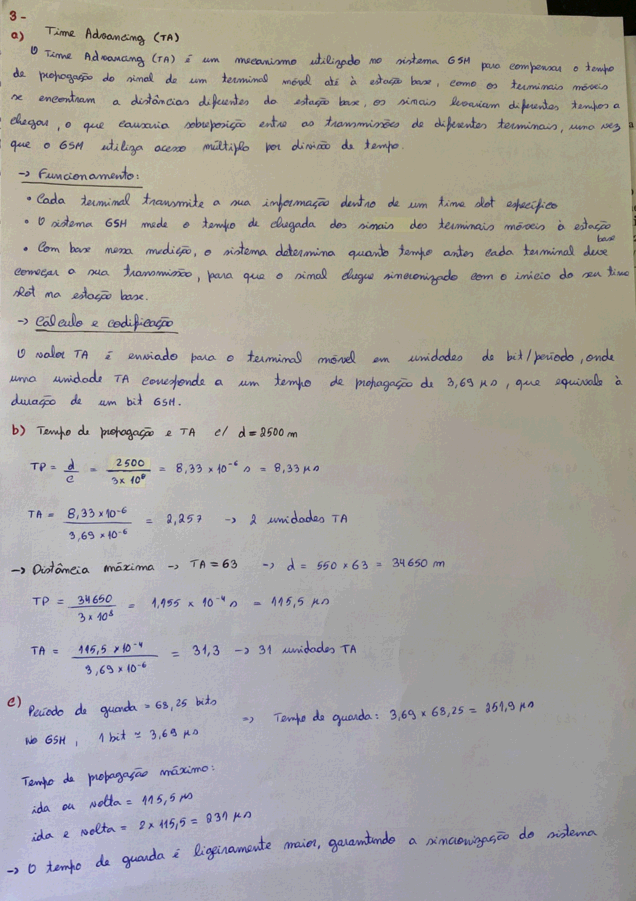 3 -
a) Time Advancing (TA)
O Time Advancing (TA) é um mecanismo utilizado no sistema GSM para compensar o tempo
de propagação do sinal de um terminal móvel até à estação base, como os terminais móveis
se encontram a distâncias diferentes da estação base, os sinais levariam diferentes tempos a
chegar, o que causaria sobreposição entre as transmissões de diferentes terminais, uma vez
que o GSM utiliza acesso múltiplo por divisão de tempo.
→ Funcionamento:
• Cada terminal transmite a sua informação dentro de um time slot específico
• O sistema GSM mede o tempo de chegada dos sinais dos terminais móveis à estação
base
• Com base nessa medição, o sistema determina quanto tempo antes cada terminal deve
começar a sua transmissão, para que o sinal chegue sincronizado com o início do seu time
slot na estação base.
→ Cálculo e codificação
O valor TA é enviado para o terminal móvel em unidades de bit/período, onde
uma unidade TA corresponde a um tempo de propagação de 3,69 µs, que equivale à
duração de um bit GSM.
b) Tempo de propagação e TA c/ d = 2500 m
TP = d/c = 2500/3x10⁸ = 8,33 x 10⁻⁶ s = 8,33 µs
TA = 8,33 x10⁻⁶/3,69 x10⁻⁶ = 2,257 → 2 unidades TA
→ Distância máxima → TA = 63 → d = 550 x 63 = 34650 m
TP = 34650/3x10⁸ = 1,155 x 10⁻⁴ s = 115,5 µs
TA = 115,5 x10⁻⁴/3,69 x10⁻⁶ = 31,3 → 31 unidades TA
c) Período de guarda = 68,25 bits
No GSM, 1 bit ≃ 3,69 µs => Tempo de guarda: 3,69 x 68,25 = 251,9 µs
Tempo de propagação máximo:
ida ou volta = 115,5 µs
ida e volta = 2 x 115,5 = 231 µs
→ O tempo de guarda é ligeiramente maior, garantindo a sincronização do sistema